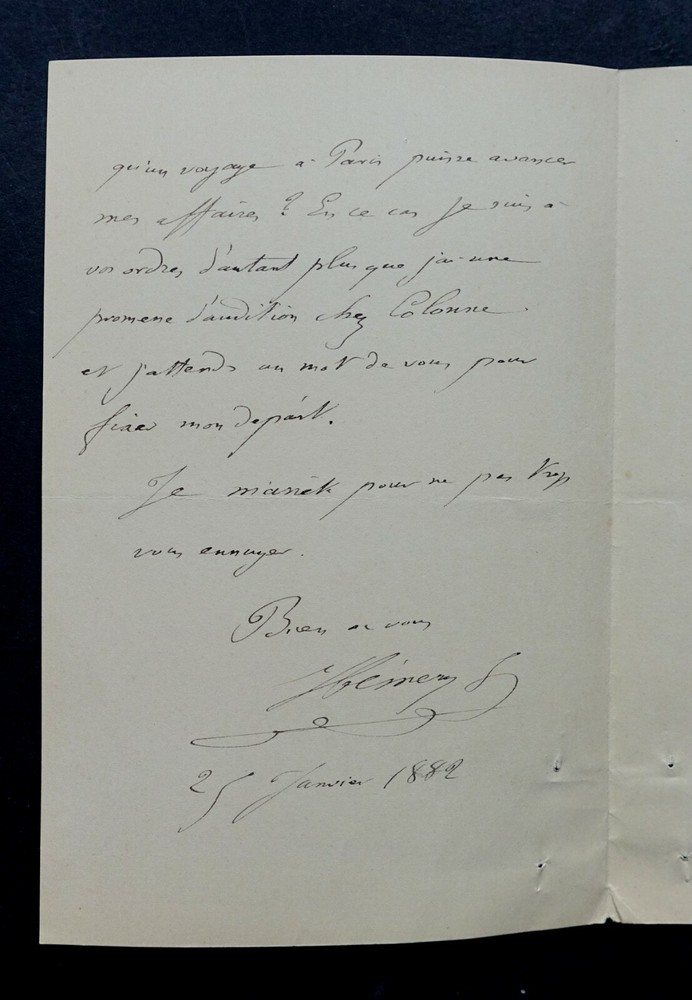 qu'un voyage a Paris puisse avancer
mes affaires ? En ce cas je suis a
vos ordres d'autant plus que j'ai une
promene d'audition chez Colonne
et j'attends un mot de vous pour
fixer mon depárt.
Je m'arrête pour ne pas trop
vous ennuyer.
Bien a vous
25 Janvier 1882